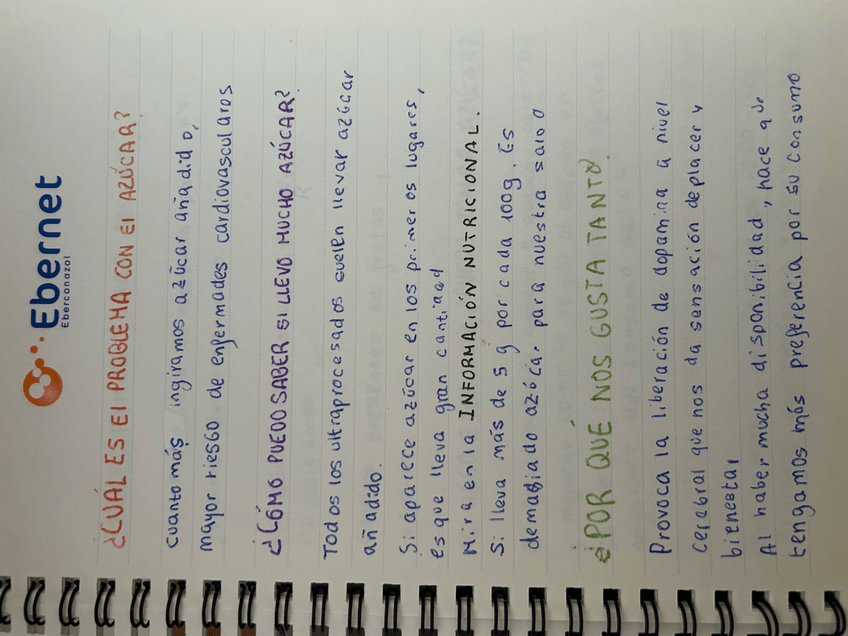 Ebernet
Eberconazol
¿CUÁL ES EL PROBLEMA CON EL AZÚCAR?
cuanto más ingiramos azúcar añadido,
mayor riesgo de enfermades cardiovasculares
¿CÓMO PUEDO SABER SI LLEVO MUCHO AZÚCAR?
Todos los ultraprocesados suelen llevar azúcar
añadido.
Si aparece azúcar en los primeros lugares,
es que lleva gran cantidad
Mira en la INFORMACIÓN NUTRICIONAL.
Si lleva más de 5 g por cada 100g. Es
demasiado azúcar para nuestra salud
¿POR QUÉ NOS GUSTA TANTO?
Provoca la liberación de dopamina a nivel
cerebral que nos da sensación de placer y
bienestar
Al haber mucha disponibilidad, hace que
tengamos más preferencia por su consumo